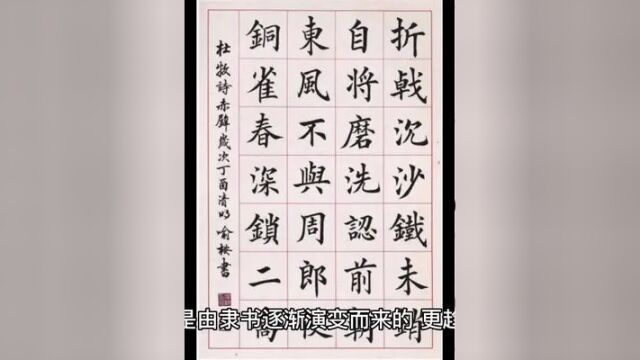 折戟沉沙鐵未銷
自將磨洗認前朝
東風不與周郎便
銅雀春深鎖二喬
杜牧詩赤壁歲次丁酉清明
是由隶书逐渐演变而来的 更